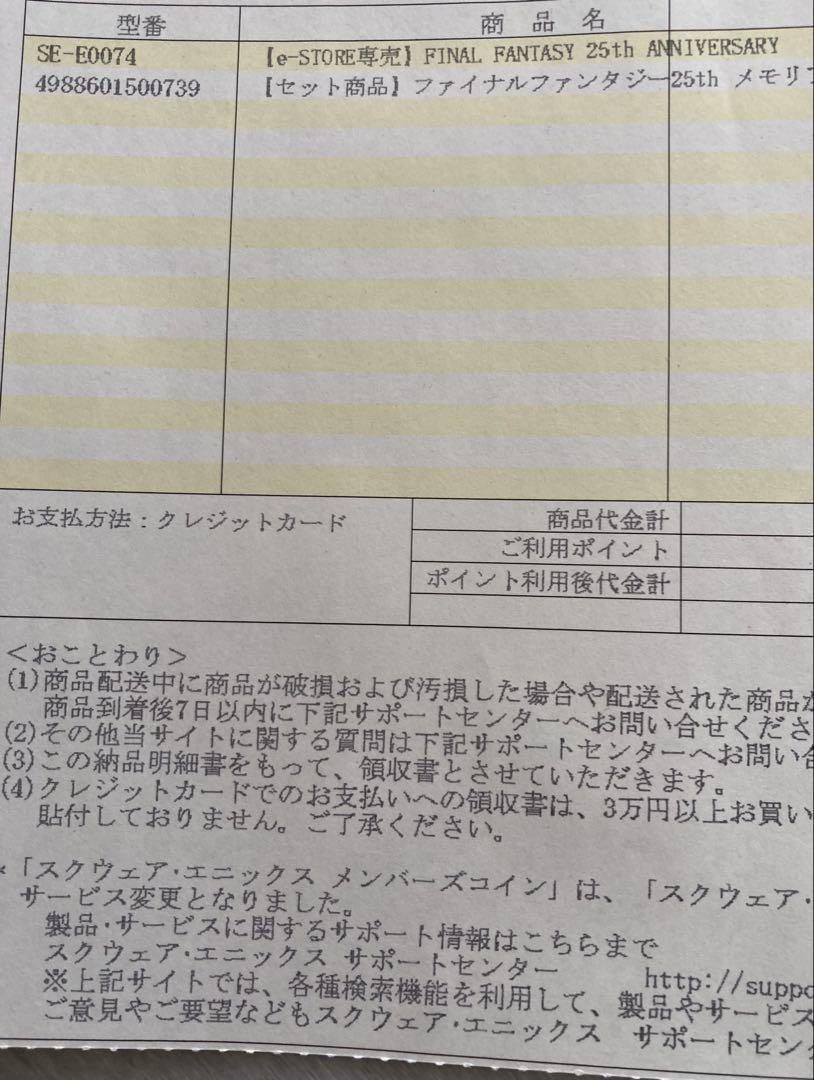 型番 商品名
SE-E0074 【e-STORE専売】FINAL FANTASY 25th ANNIVERSARY
4988601500739 【セット商品】ファイナルファンタジー25th メモリア
お支払方法：クレジットカード
商品代金計
ご利用ポイント
ポイント利用後代金計
＜おことわり＞
(1)商品配送中に商品が破損および汚損した場合や配送された商品が
商品到着後7日以内に下記サポートセンターへお問い合せくださ
(2)その他当サイトに関する質問は下記サポートセンターへお問い合
(3)この納品明細書をもって、領収書とさせていただきます。
(4)クレジットカードでのお支払いへの領収書は、3万円以上お買い
貼付しておりません。ご了承ください。
*「スクウェア･エニックス メンバーズコイン」は、「スクウェア･
サービス変更となりました。
製品･サービスに関するサポート情報はこちらまで
スクウェア･エニックス サポートセンター http://suppo
※上記サイトでは、各種検索機能を利用して、製品やサービス
ご意見やご要望などもスクウェア･エニックス サポートセン